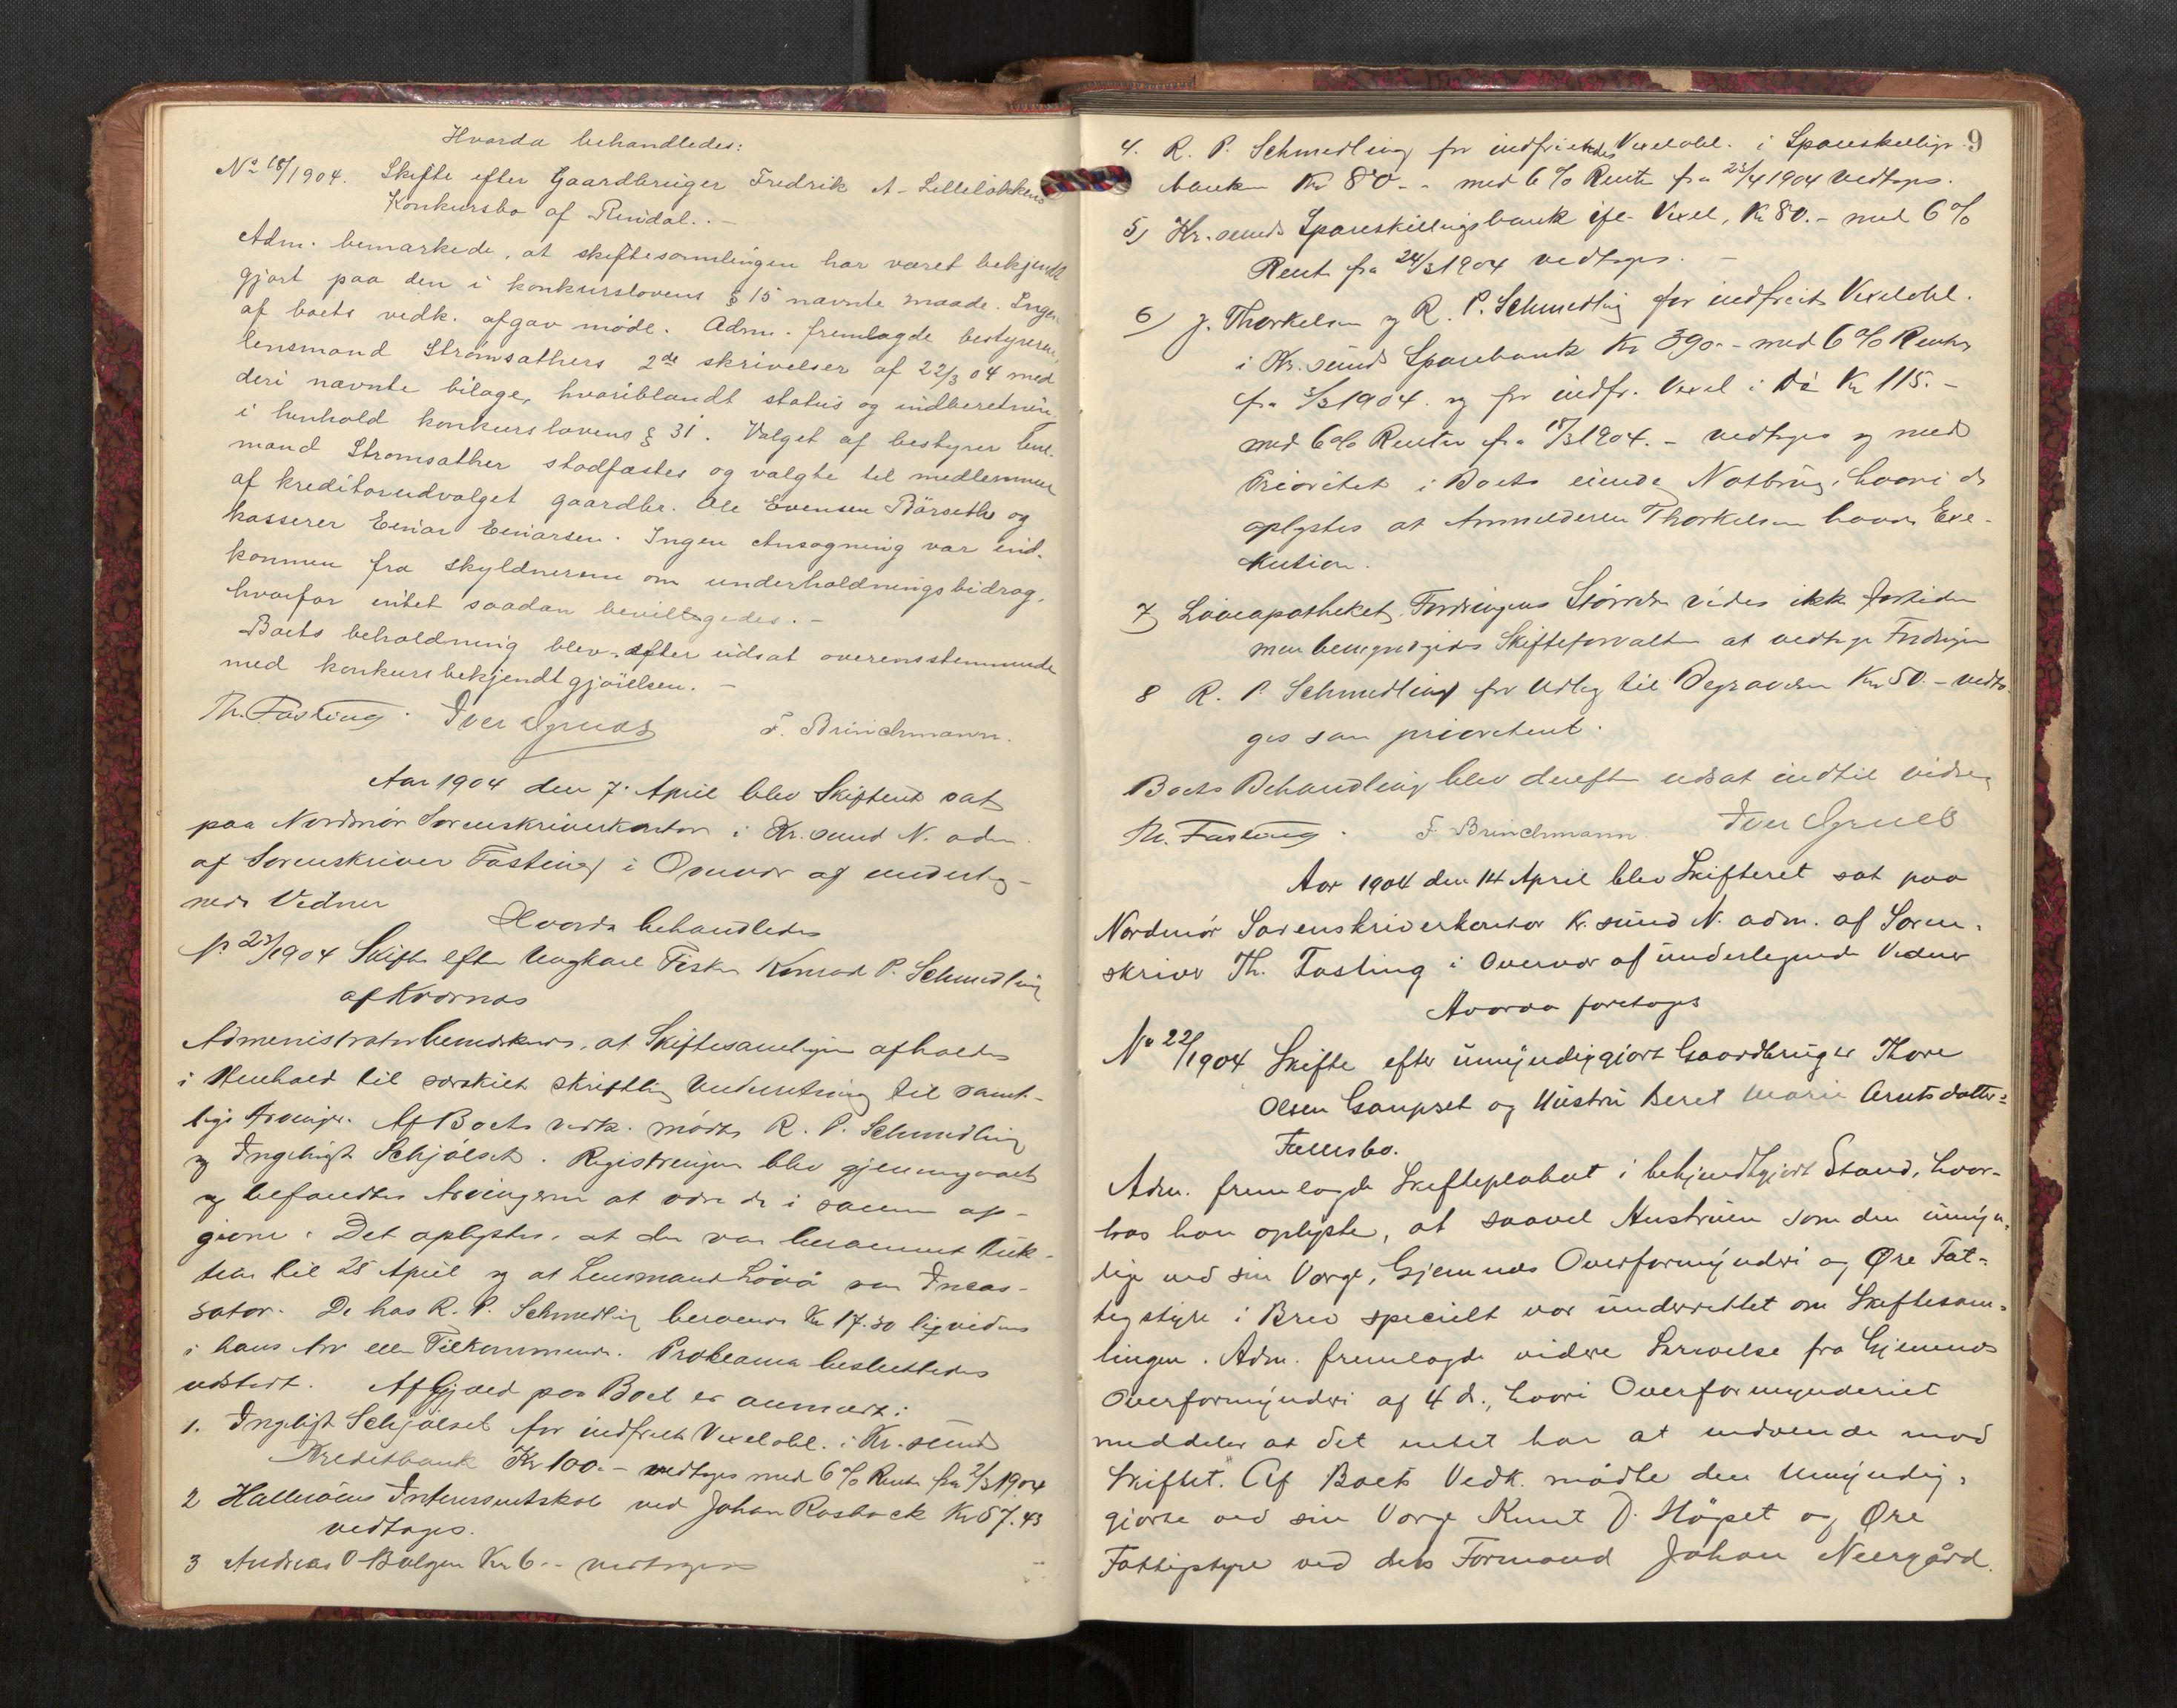 Hvorda behandledes:
No 18/1904. Skifte efter Gaardbruger Fredrik A. Lilleløkkens
Konkursbo af Rindal. -
Adm. bemærkede, at skiftesamlingen har været bekjendt
gjort paa den i konkurslovens § 15 nævnte maade. Ingen
af boets vedk. afgav møde. Adm. fremlagde bestyreren,
lensmand Strømsæthers 2de skrivelser af 22/3 04 med
deri nævnte bilage, hvoriblandt status og indberetnin
i henhold konkurslovens § 31. Valget af bestyrer lens-
mand Strømsæther stadfæstes og valgte til medlemmer
af kreditorudvalget gaardbr. Ole Evensen Bårseth og
kasserer Einar Einarsen. Ingen Ansøgning var ind-
kommen fra skyldneren om underholdningsbidrag,
hvorfor intet saadan bevilgedes. -
Boets behandling blev. efter udsat overensstemmende
med konkursbekjendtgjørelsen. -
Th. Fasting. Iver F. Brinchmann.
Aar 1904 den 7. April blev Skifteret sat
paa Nordmør Sorenskriverkontor i Kr.sund N. adm.
af Sorenskriver Fasting i Overvær af underteg-
nede Vidner
Hvorda behandledes
No 23/1904 Skifte efter Ungkarl Fisker Konrad P. Schmedling
af Kvernes
Administrator bemærkede, at Skiftesamlingen afholdes
i Henhold til særskilt skriftlig Underretning til samt-
lige Arvinger. Af Boets vedk. mødte R. P. Schmedling
og Ingebrigt Schjølset. Registreringen blev gjennemgaaet
og befandtes Arvingerne at være de i samme op-
givne. Det oplystes, at der var berammet Auk-
tion til 25 April og at Lensmand Løvå var Incas-
sator. De hos R. P. Schmedling beroende Kr 17.30 ligvidene
i hans Arv eller Tilkommende. Proklama besluttedes
udstedt. Af Gjæld paa Boet er anmeldt:
1. Ingebrigt Schjølset for indfriet Vexelobl. i Kr.sunds
Kreditbank Kr 100.- vedtoges med 6% Rente fra 2/3 1904
2 Interessentskab ved Johan Rosback Kr 57.43
vedtoges.
3 Andreas O Bolgen Kr 6.- vedtoges
9
4. R. P. Schmedling for indfriet Vexelobl. i Spareskillings
banken Kr 80.- med 6% Rente fra 23/4 1904 vedtoges.
5) Kr.sunds Spareskillingsbank ifl. Vexel, Kr 80.- med 6%
Rente fra 24/3 1904 vedtoges. -
6) J. Thorkelsen og R. P. Schmedling for indfriet Vexelobl.
i Kr.sunds Sparebank Kr 390.- med 6% Renter
fra 3/3 1904. og for indfr. Vexel i Do Kr 115.-
med 6% Renter fra 18/3 1904. - vedtoges og med
Prioritet i Boets eiende Notbrug, hvori de
oplystes at Anmelderen Thorkelsen havde Exe-
kution.
7) Løveapotheket. Fordringens Størrelse vides ikke fortiden
men bemyndiges Skifteforvalteren at vedtage Fordringen
8 R. P. Schmedling for Udlæg til Begravelsen Kr 50.- vedto-
ges som prioriteret.
Boets Behandling blev derefter udsat indtil videre
Th. Fasting. F. Brinchmann. Iver
Aar 1904 den 14 April blev Skifteret sat paa
Nordmør Sorenskriverkontor Kr.sund N. adm. af Soren-
skriver Th. Fasting i Overvær af undertegnede Vidner
Hvorda foretoges
No 22/1904 Skifte efter umyndiggjort Gaardbruger Thore
Olsen Gaupset og Hustru Beret Marie Arntsdatter=
Fællesbo.
Adm. fremlagde Skifteplakat i bekjendtgjort Stand, hvor-
hos han oplyste, at saavel Hustruen som den umyn-
dige ved sin Værge, Gjemnæs Overformynderi og Øre Fat-
tigstyre i Brev specielt var underrettet om Skiftesam-
lingen. Adm. fremlagde videre Skrivelse fra Gjemnæs
Overformynderi af 4 ds., hvori Overformynderiet
meddeler at det intet har at indvende mod
Skiftet. Af Boets Vedk. mødte den Umyndig-
gjorte ved sin Værge Knut J. Høgset og Øre
Fattigstyre ved dets Formand Johan Neergård.